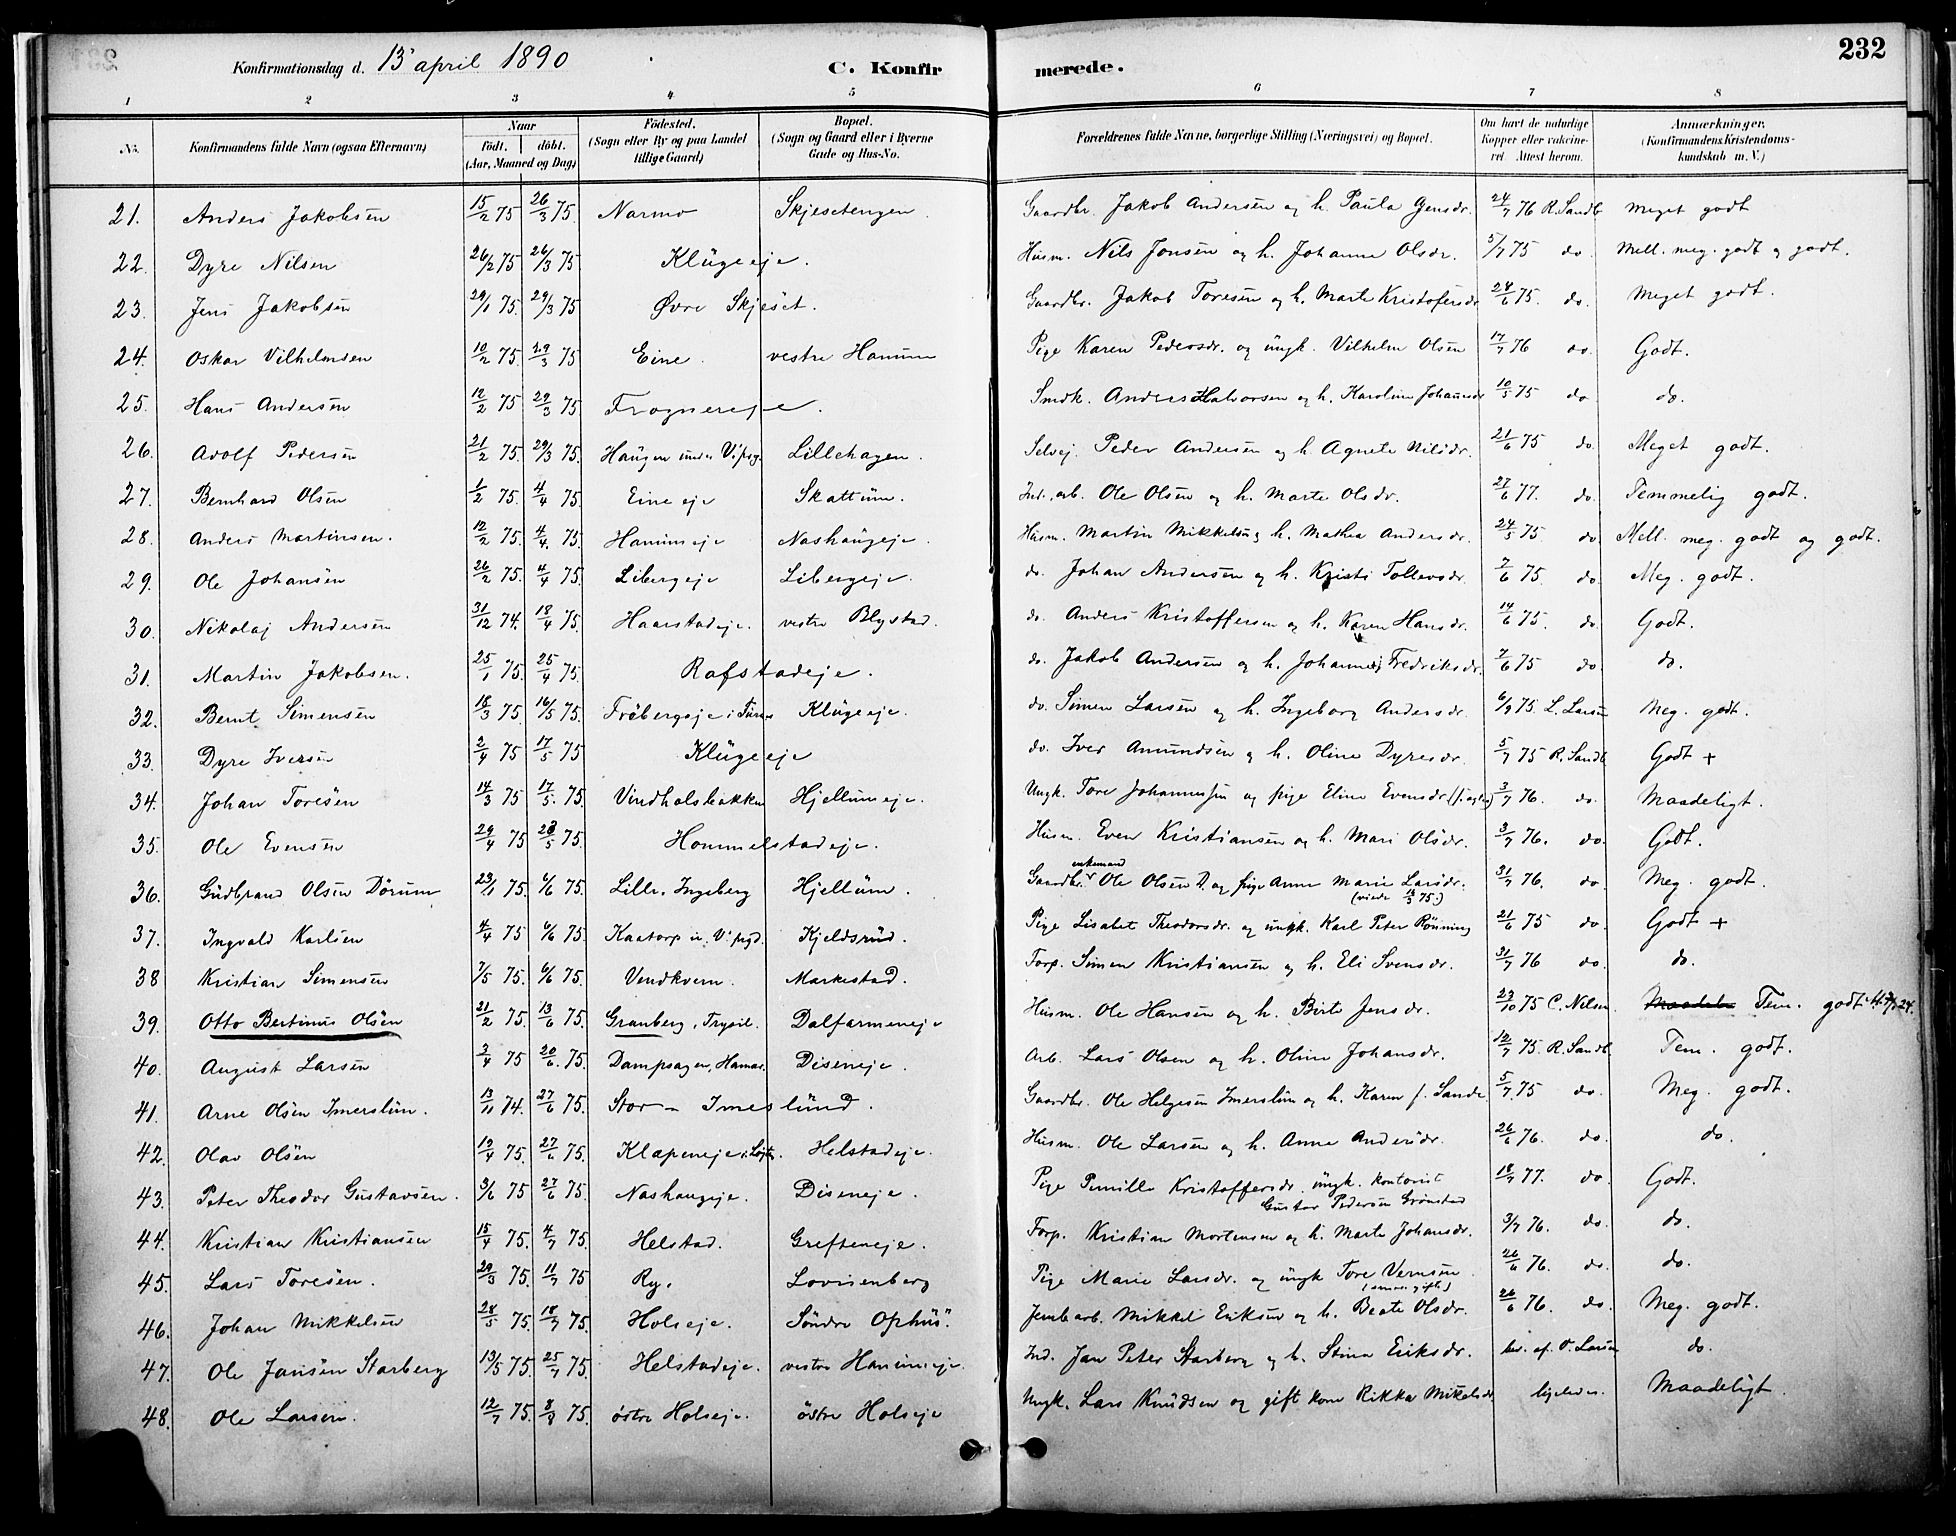 Konfirmationsdag d. 13' april 1890 C. Konfir merede. 232
1 2 3 4 5 6 7 8
No. Konfirmandens fulde Navn (ogsaa Efternavn) Naar født. døbt. (Aar, Maaned og Dag) Fødested. (Sogn eller By og paa Landet tillige Gaard) Bopæl. (Sogn og Gaard eller i Byerne Gade og Hus-No. Forældrenes fulde Navne, borgerlige Stilling (Næringsvei) og Bopæl. Om havt de naturlige Kopper eller vakcineret. Attest herom. Anmærkninger. (Konfirmandens Kristendomskundskab m. V.)
21. Anders Jakobsen 15/2 75 26/3 75. Narmo Skjesetengen. Gaardbr. Jakob Andersen og h. Paula Jensdr. 24/7 76 R. Sandb. Meget godt
22. Dyre Nilsen 26/2 75 26/3 75 Klügeeje. Husm. Nils Jonsen og h. Johanne Olsdr. 5/7 75 do. Mell. meg. godt og godt.
23. Jens Jakobsen 29/1 75. 29/3 75 Øvre Skjeset. Gaardbr. Jakob Toresen og h. Marte Kristofersdr. 24/6 75. do. Meget godt.
24. Oskar Vilhelmsen 10/2 75. 29/3 75 Eine. vestre Hanum Pige Karen Pedersdr. og üngk. Vilhelm Olsen 17/7 76 do. Godt.
25. Hans Andersen 12/2 75 29/3 75 Frognereje. Smdk. Anders Halvorsen og h. Karoline Johannesdr. 10/5 75 do do.
26. Adolf Pedersen 21/2 75. 29/3 75. Haugen under V. psg. Lillehagen. Selvej. Peder Andersen og h. Agnete Nilsdr. 21/6 75 do. Meget godt.
27. Bernhard Olsen 1/2 75. 4/4 75 Eineeje Skattum. Ind., arb. Ole Olsen og h. Marte Olsdr. 27/6 77. do. Temmelig godt.
28. Anders Martinsen. 12/2 75. 4/4. 75. Hanumeje Nashaugeje. Husm. Martin Mikkelsen og h. Mathea Andersdr. 24/5 75. do Mell. meg. godt og godt.
29. Ole Johansen 26/2 75. 4/4 75. Libergeje Libergeje. do. Johan Andersen og h. Kristi Tollevsdr. 7/6 75. do. Meg. godt.
30. Nikolaj Andersen 31/12 74. 18/4 75. Haarstadeje. vestre Blystad. do. Anders Kristoffersen og h. Karen Hansdr. 14/6 75. do. Godt.
31. Martin Jakobsen. 25/1 75. 25/4 75. Rafstadeje. do. Jakob Andersen og h. Johanne Fredriksdr. 7/6 75 do do.
32. Bernt Simensen 18/3 75. 16/5 75. Fröbergseje i Furnes Klügeeje. do. Simen Larsen og h. Ingeborg Andersdr. 6/9 75. L. Larsen Meg. godt.
33. Dyre Iversen 2/4 75 17/5 75 Klügeeje do. Iver Amundsen og h. Oline Dyresdr. 5/7 75 R. Sandb Godt +
34. Johan Toresen 14/3 75 17/5. 75. Vindholsbakken Hjellumeje. Ungk. Tore Johannessen og pige Eline Evensdr. 3/7 76. do. Maadeligt.
35. Ole Evensen 29/4 75 23/5 75. Hommelstadeje. Husm. Even Kristiansen og h. Mari Olsdr. 3/7 76. do. Godt.
36. Güdbrand Olsen Dörum 23/1 75. 6/6 75. Lille. Ingeberg Hjellüm. Gaardbr. enkemand Ole Olsen D. og pige Anne Marie Larsdr. 31/7 76. do Meg. godt.
(viede 18/3 75.)
37. Ingvald Karlsen 4/4 75 6/6 75. Kaatorp u. V. psgd. Kjeldsrüd. Pige Lisabet Theodorsdr. og ungk. Karl Peter Rönning 21/6 75 do Godt +
38 Kristian Simensen 7/5 75. 6/6 75. Vendkvern. Markestad. Torp. Simen Kristiansen og h. Eli Svensdr. 31/7 76 do. do.
39. Otto Bertinus Olsen 21/2 75. 13/6 75. Granberg, Trysil. Dalfarmeneje Husm. Ole Hansen og h. Birte Jensdr. 23/10 75 C. Nilsen. Tem. godt.
40. August Larsen 3/4 75 20/6. 75. Dampsagen, Hamar. Diseneje. Arb. Lars Olsen og h. Oline Johansdr. 12/7 75. R. Sandb. Tem. godt.
41. Arne Olsen Imerslün. 13/11 74. 27/6 75. Stor - Imeslünd. Gaardbr. Ole Helgesen Imerslün og h. Karen f. Sande 5/7. 75 do. Meg. godt.
42. Olav Olsen 12/4 75. 27/6 75. Klæpeneje i Løit. Helstadeje. Husm. Ole Larsen og h. Anne Andersdr. 26/6 76. do. do.
43. Peter Theodor Gustavsen. 3/6 75 27/6 75. Nashaugeje. Diseneje. Pige Pernille Kristoffersdr. üngk. kontorist 18/7 77. do Godt.
Gustav Pedersen Grönstad
44. Kristian Kristiansen 15/4 75. 4/7 75. Helstad. Grefteneje. Torp. Kristian Mortensen og h. Marte Johansdr. 3/7 76. do. do.
45. Lars Toresen. 29/3 75. 11/7 75 Ry. Lovisenberg Pige Marie Larsdr. og üngk Tore Vernsen. 26/6 76. do. do.
46. Johan Mikkelsen 28/5 75. 18/7 75. Holseje. Söndre Ophüs. Jernb arb. Mikkel Eriksen og h. Beate Olsdr. 26/6 76. do. Meg. godt.
47. Ole Jansen Starberg 13/5 75. 25/7 75. Helstadeje. vestre Hanumeje. Ind. Jan Peter Starberg og h. Stina Eriksdr. bev. af O. Larsen do.
48. Ole Larsen. 12/7 75. 8/8 75. østre Holseje. østre Holseje Ungk. Lars Knüdsen og gift kone Rikka Mikelsdr. ligeledes. Maadeligt.